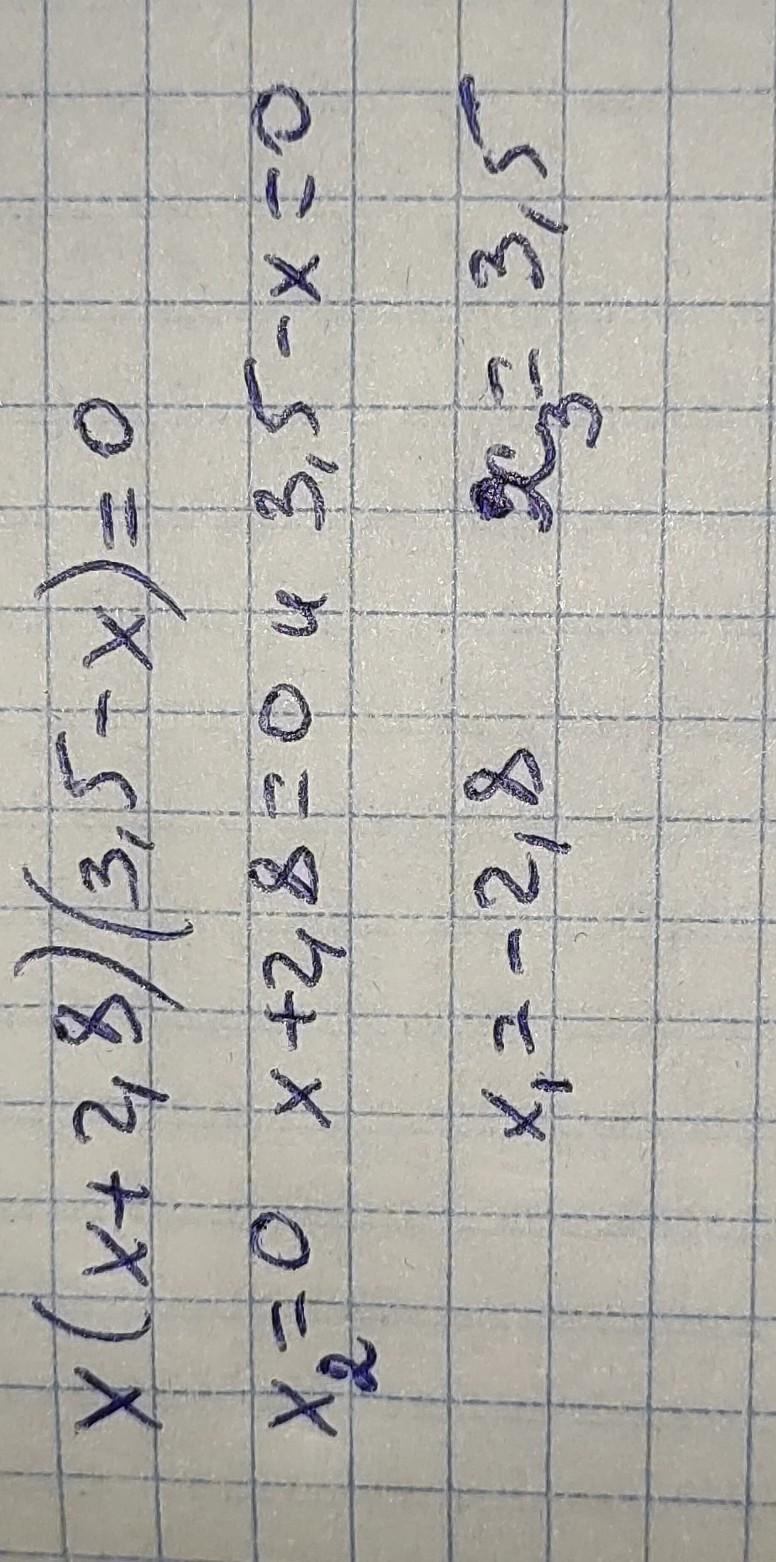 x(x+2,8)(3,5-x)=0
x₂=0 x+2,8=0 и 3,5-x=0
x₁=-2,8 x₃=3,5